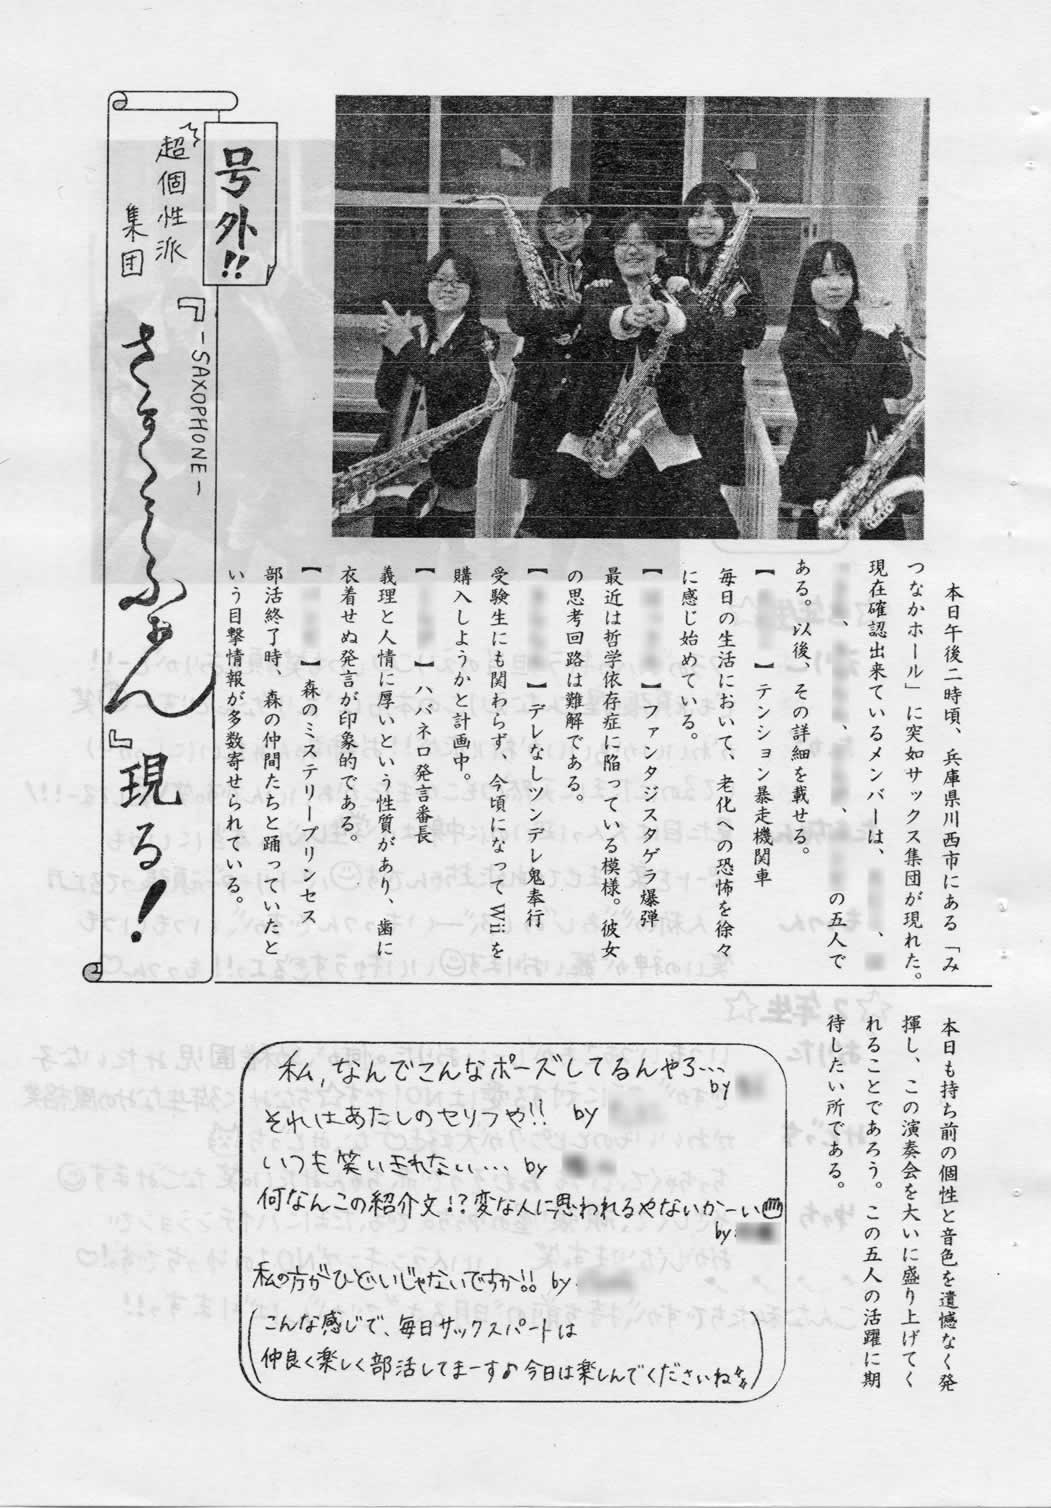 号外!!
超個性派
集団
『さすーこーふぉん』現る!
-SAXOPHONE-
本日午後二時頃、兵庫県川西市にある「み
つなかホール」に突如サックス集団が現れた。
現在確認出来ているメンバーは、
の五人で
ある。以後、その詳細を載せる。
【 】テンション暴走機関車
毎日の生活において、老化への恐怖を徐々
に感じ始めている。
【 】ファンタジスタゲラ爆弾
最近は哲学依存症に陥っている模様。彼女
の思考回路は難解である。
【 】デレなしツンデレ鬼奉行
受験生にも関わらず、今頃になってWiiを
購入しようかと計画中。
【 】ハバネロ発言番長
義理と人情に厚いという性質があり、歯に
衣着せぬ発言が印象的である。
【 】森のミステリープリンセス
部活終了時、森の仲間たちと踊っていたと
いう目撃情報が多数寄せられている。
本日も持ち前の個性と音色を遺憾なく発
揮し、この演奏会を大いに盛り上げてく
れることであろう。この五人の活躍に期
待したい所である。
私、なんでこんなポーズしてるんやろ… by
それはあたしのセリフや!! by
いつも笑いきれない… by
何なんこの紹介文!?変な人に思われるやないかーい
by
私の方がひどいじゃないですか!! by
(こんな感じで、毎日サックスパートは
仲良く楽しく部活してまーす♪今日は楽しんでくださいね)